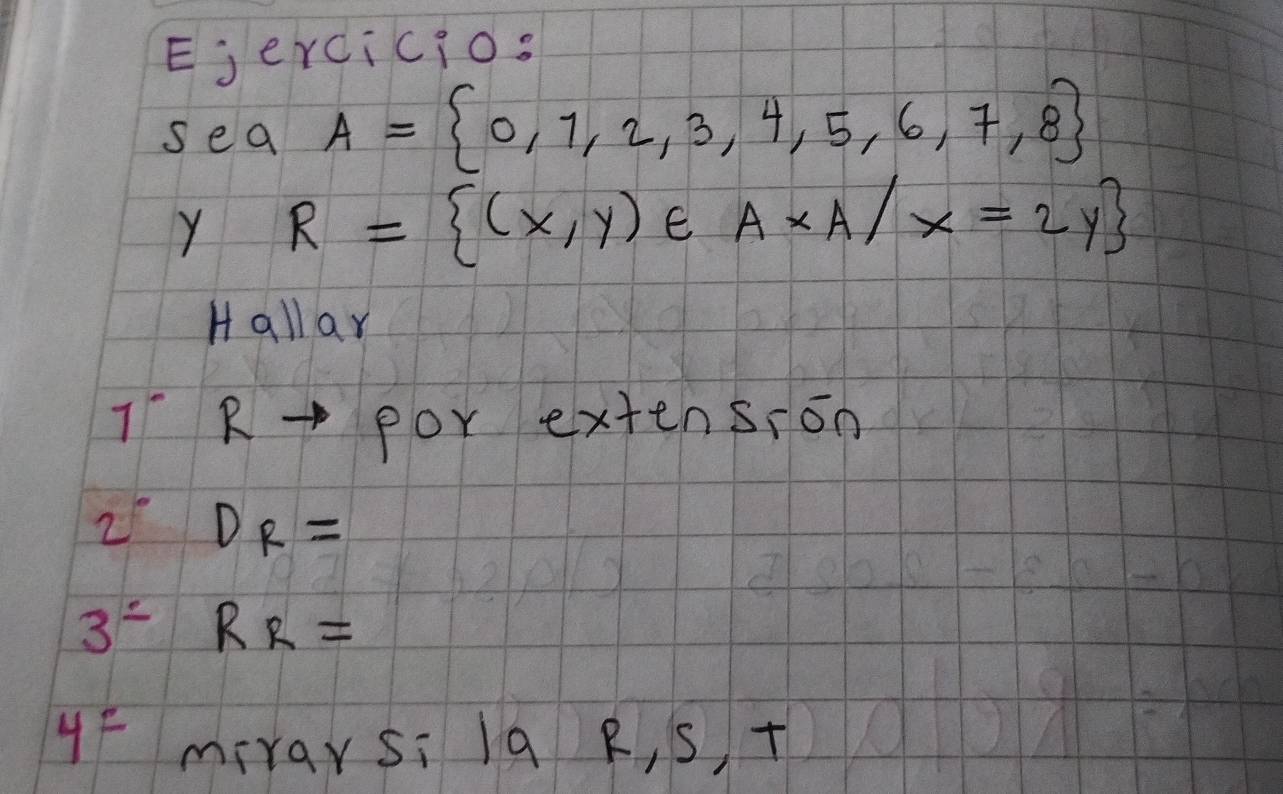 Ejercicio:
sea A = {0, 1, 2, 3, 4, 5, 6, 7, 8}
y R = {(x, y) ∈ A × A / x = 2y}
Hallar
1- R → por extensión
2- DR =
3- RR =
4- mirar si la R, S, T